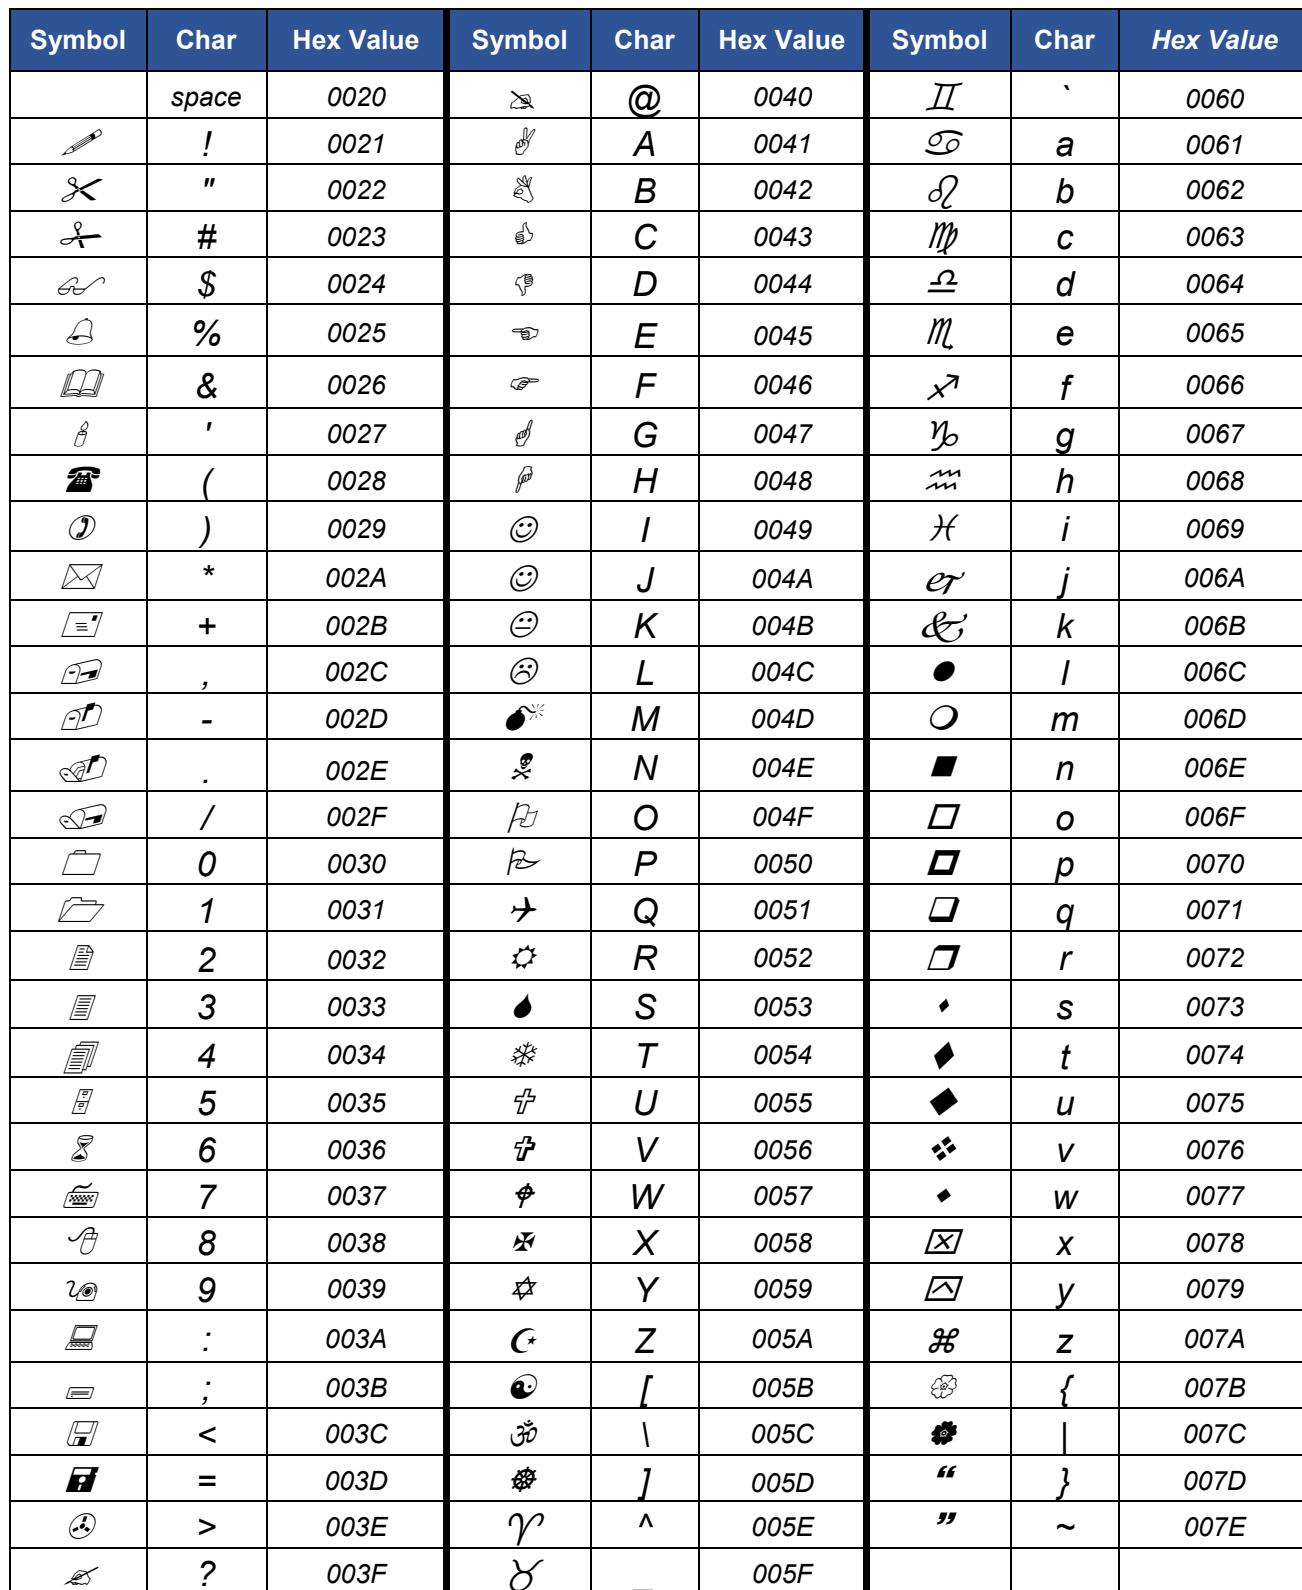 Symbol Char Hex Value Symbol Char Hex Value Symbol Char Hex Value
space 0020 @ 0040 ♊ ` 0060
✏ ! 0021 ✌ A 0041 ♋ a 0061
✂ " 0022 👌 B 0042 ♌ b 0062
✁ # 0023 👍 C 0043 ♍ c 0063
👓 $ 0024 👎 D 0044 ♎ d 0064
🔔 % 0025 ☜ E 0045 ♏ e 0065
📖 & 0026 ☞ F 0046 ♐ f 0066
🕯 ' 0027 ☝ G 0047 ♑ g 0067
☎ ( 0028 ☟ H 0048 ♒ h 0068
✆ ) 0029 ☺ I 0049 ♓ i 0069
✉ * 002A ☺ J 004A er j 006A
+ 002B 😐 K 004B & k 006B
, 002C ☹ L 004C ● l 006C
- 002D 💣 M 004D ❍ m 006D
. 002E ☠ N 004E ■ n 006E
/ 002F O 004F □ o 006F
0 0030 P 0050 p 0070
1 0031 ✈ Q 0051 ❑ q 0071
2 0032 ☼ R 0052 ❒ r 0072
3 0033 S 0053 s 0073
4 0034 ❄ T 0054 ⧫ t 0074
5 0035 U 0055 ◆ u 0075
6 0036 ✞ V 0056 ❖ v 0076
7 0037 W 0057 w 0077
8 0038 ✠ X 0058 ⌧ x 0078
9 0039 ✡ Y 0059 y 0079
: 003A ☪ Z 005A ⌘ z 007A
; 003B ☯ [ 005B { 007B
< 003C ॐ \ 005C | 007C
= 003D ☸ ] 005D ❝ } 007D
✇ > 003E ♈ ^ 005E ❞ ~ 007E
✍ ? 003F ♉ _ 005F